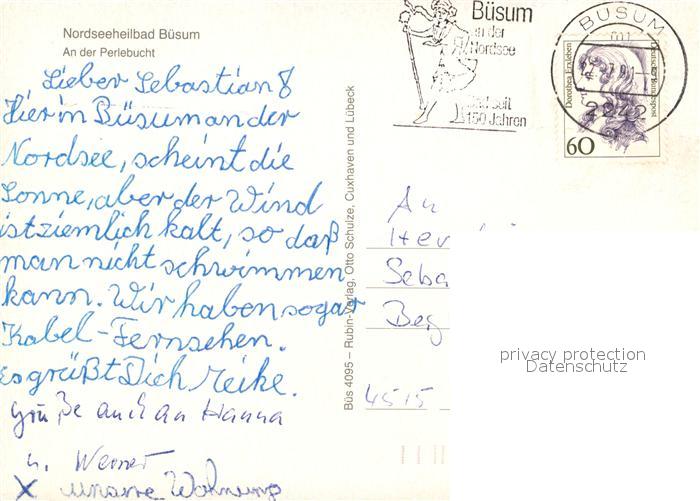 Nordseeheilbad Büsum
An der Perlebucht
Lieber Sebastian!
Hier in Büsum an der
Nordsee, scheint die
Sonne, aber der Wind
ist ziemlich kalt, so daß
man nicht schwimmen
kann. Wir haben sogar
Kabel-Fernsehen.
Es grüßt Dich Meike.
Grüße auch an Hanna
u. Werner
X unsere Wohnung
Büs 4095 – Rubin-Verlag, Otto Schulze, Cuxhaven und Lübeck
Büsum
an der
Nordsee
Bad seit
150 Jahren
BÜSUM
2242
Dorothea Erxleben
Deutsche Bundespost
60
An
Her
Seba
Beg
4515
privacy protection
Datenschutz